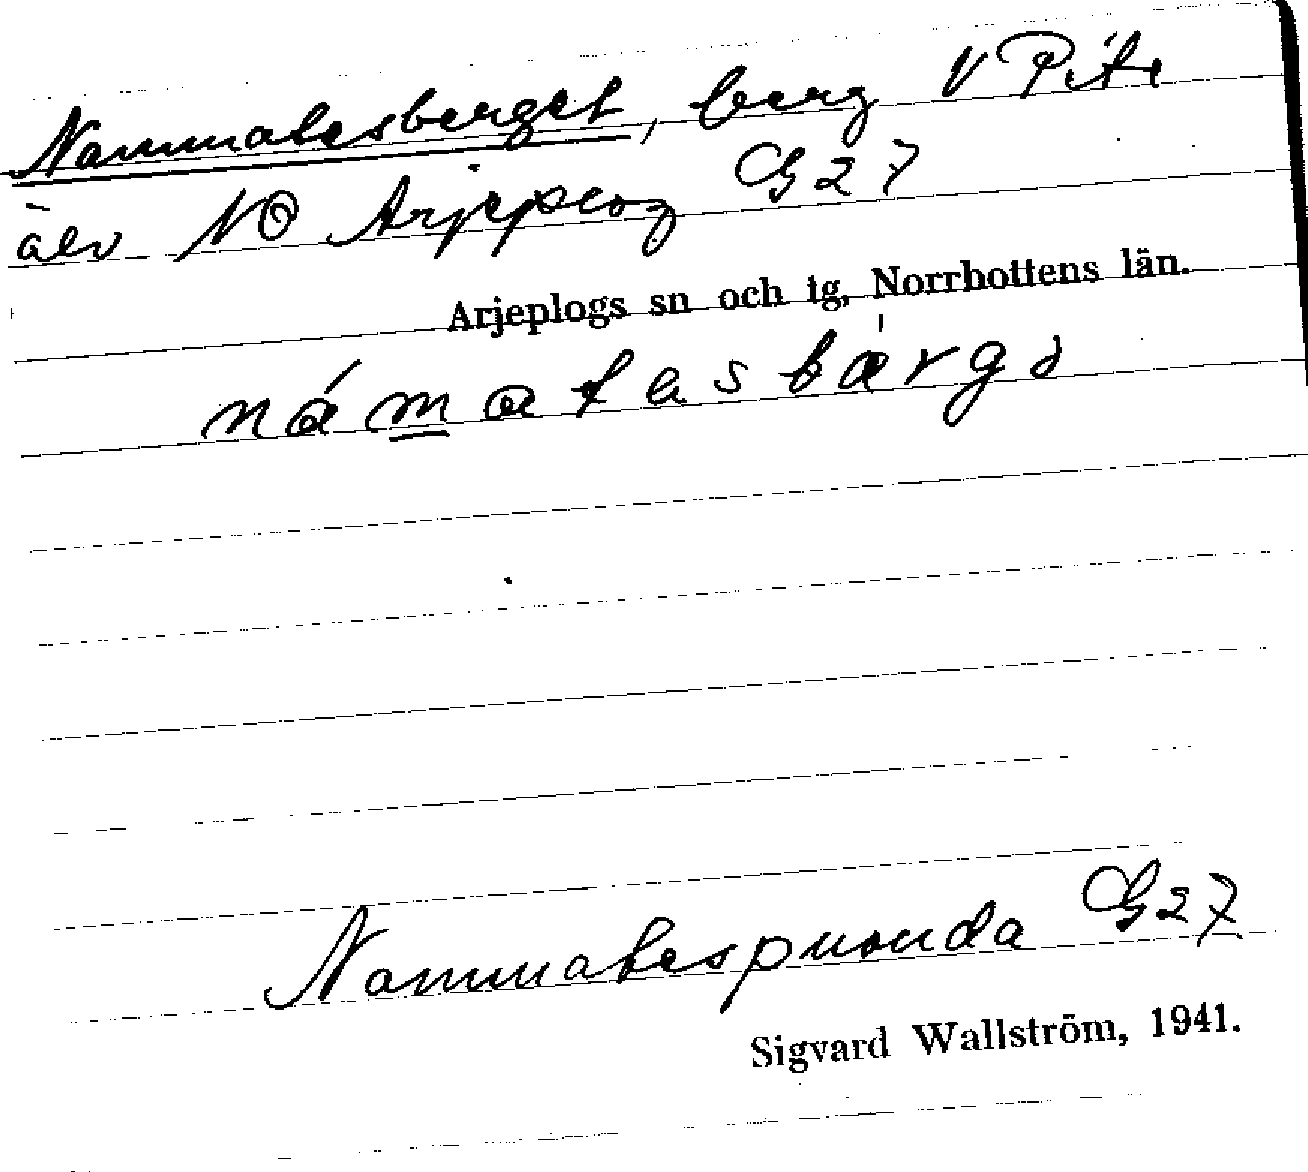 Nammatesberget, berg V Pite
älv NO Arjeplog G27
Arjeplogs sn och tg, Norrbottens län.
námatasbárgə
Nammatespuouda G27
Sigvard Wallström, 1941.